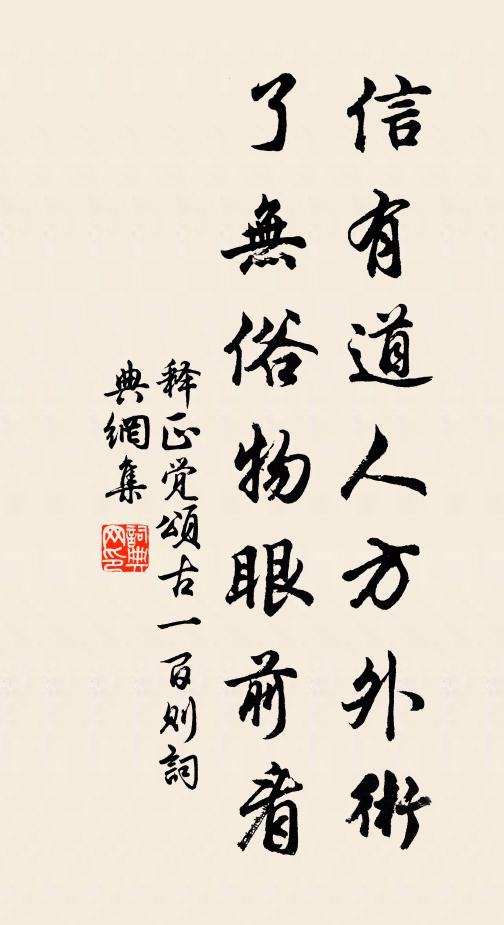 信有道人方外術
了無俗物眼前看
释正觉頌古一百则詞
典網集
詞典網印